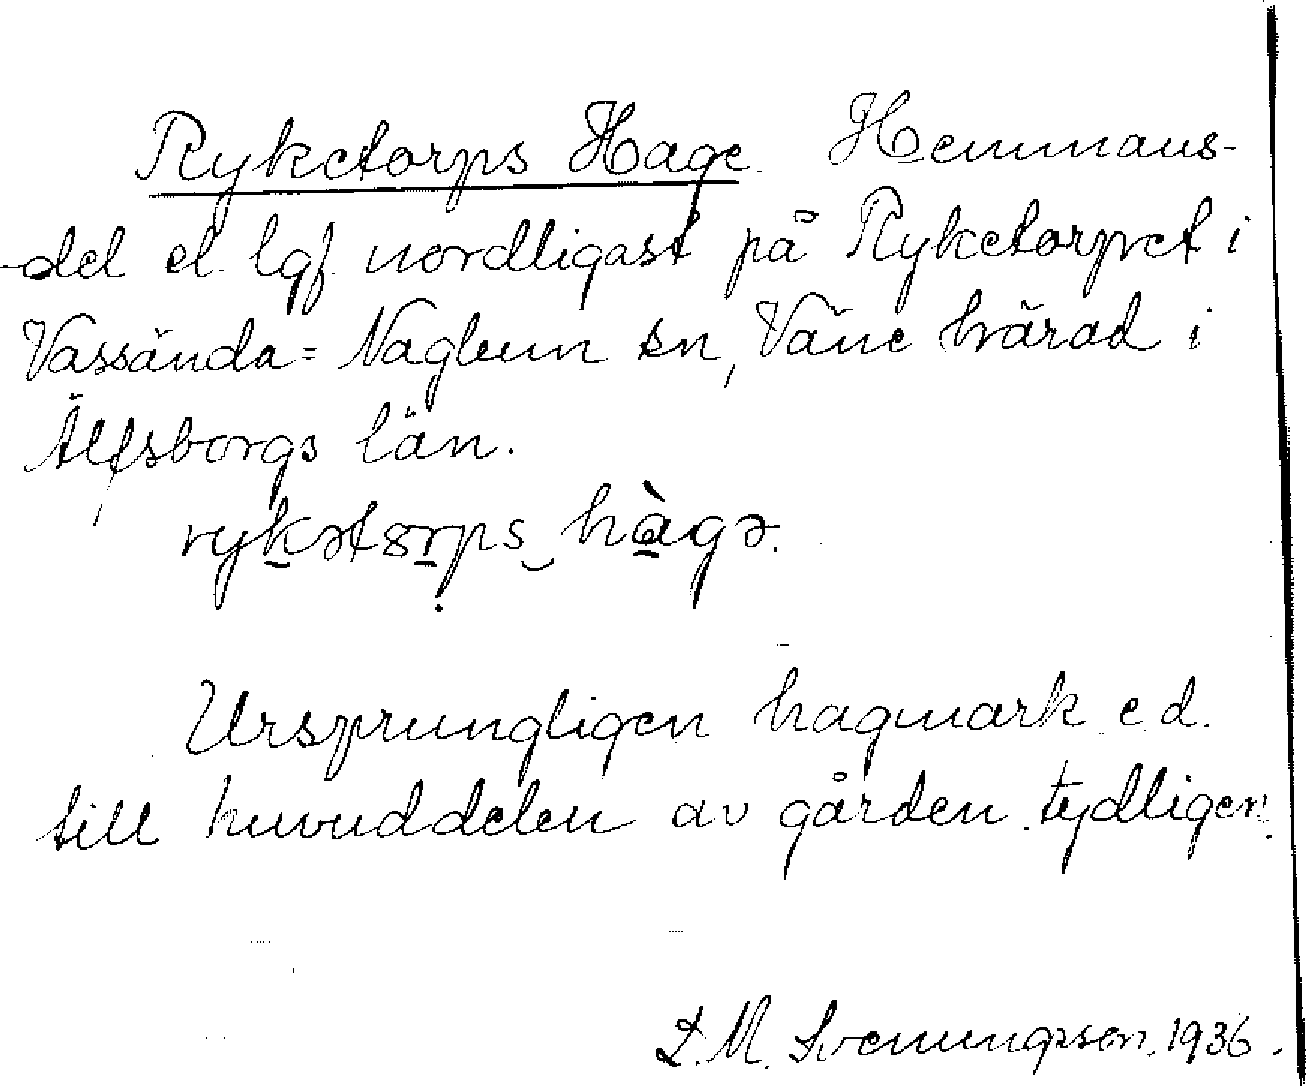 Ryketorps Hage. Hemmans-
del el. lgf. nordligast på Ryketorpet i
Vassända=Naglum sn, Väne härad i
Älfsborgs län.
rykətorps hàgə.
Ursprungligen hagmark e.d.
till huvuddelen av gården tydligen.
D.M. Svenungsson. 1936.